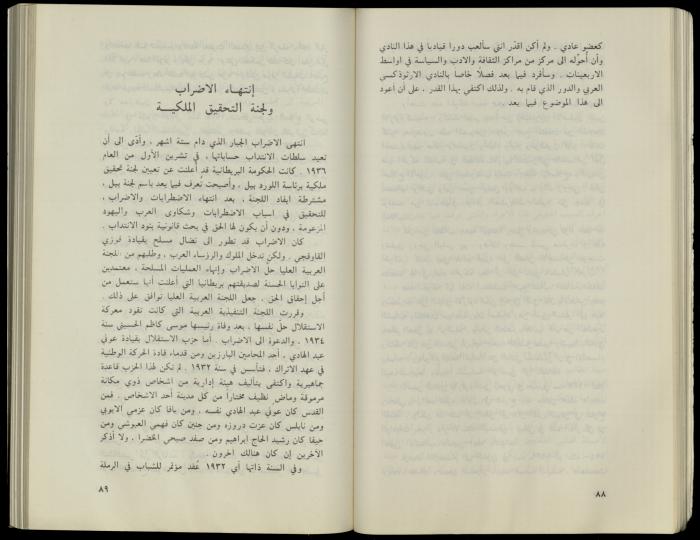 كعضو عادي . ولم أكن اقدّر انني سألعب دورا قياديا في هذا النادي
وأن أحوّله الى مركز من مراكز الثقافة والادب والسياسة في اواسط
الاربعينات . وسأفرد فيما بعد فصلًا خاصا بالنادي الارثوذكسي
العربي والدور الذي قام به . ولذلك اكتفي بهذا القدر ، على أن أعود
الى هذا الموضوع فيما بعد
٨٨
إنتهاء الاضراب
ولجنة التحقيق الملكية
انتهى الاضراب الجبار الذي دام ستة اشهر ، وأدّى الى أن
تعيد سلطات الانتداب حساباتها ، في تشرين الأول من العام
١٩٣٦ . كانت الحكومة البريطانية قد أعلنت عن تعيين لجنة تحقيق
ملكية برئاسة اللورد بيل ، وأصبحت تعرف فيما بعد باسم لجنة بيل ،
مشترطة ايفاد اللجنة ، بعد انتهاء الاضطرابات والاضراب ،
للتحقيق في اسباب الاضطرابات وشكاوى العرب واليهود
المزعومة ، ودون أن يكون لها الحق في بحث قانونية بنود الانتداب .
كان الاضراب قد تطور الى نضال مسلح بقيادة فوزي
القاوقجي . ولكن تدخل الملوك والرؤساء العرب ، وطلبهم من اللجنة
العربية العليا حل الاضراب وإنهاء العمليات المسلحة ، معتمدين
على النوايا الحسنة لصديقتهم بريطانيا التي أعلنت أنها ستعمل من
أجل إحقاق الحق ، جعل اللجنة العربية العليا توافق على ذلك .
وقررت اللجنة التنفيذية العربية التي كانت تقود معركة
الاستقلال حل نفسها ، بعد وفاة رئيسها موسى كاظم الحسيني سنة
١٩٣٤ ، والدعوة الى الاضراب . أما حزب الاستقلال بقيادة عوني
عبد الهادي ، أحد المحامين البارزين ومن قدماء قادة الحركة الوطنية
في عهد الاتراك ، فتأسس في سنة ١٩٣٢ . لم تكن لهذا الحزب قاعدة
جماهيرية واكتفى بتأليف هيئة إدارية من اشخاص ذوي مكانة
مرموقة وماض نظيف مختاراً من كل مدينة أحد الاشخاص . فمن
القدس كان عوني عبد الهادي نفسه ، ومن يافا كان عزمي الايوبي
ومن نابلس كان عزت دروزه ومن جنين كان فهمي العبوشي ومن
حيفا كان رشيد الحاج ابراهيم ومن صفد صبحي الخضرا ، ولا أذكر
الآخرين إن كان هنالك اخرون .
وفي السنة ذاتها أي ١٩٣٢ عُقد مؤتمر للشباب في الرملة
٨٩